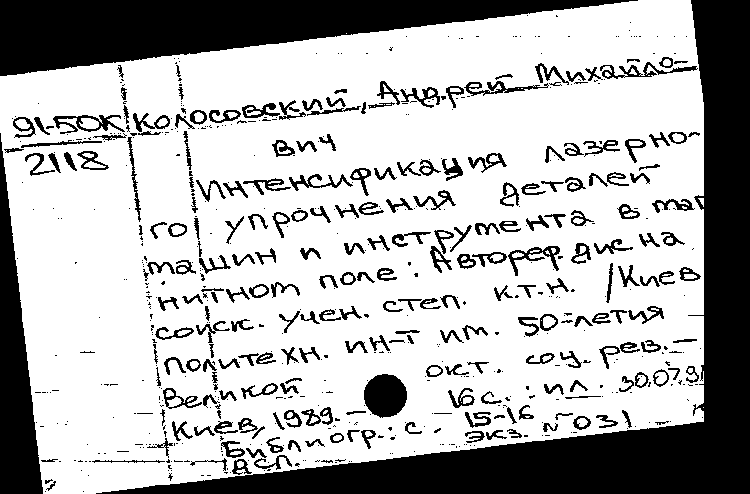 91-50К Колосовский, Андрей Михайло-
2118 вич
Интенсификация лазерно-
го упрочнения деталей
машин и инструмента в маг
нитном поле: Автореф. дис на
соиск. учен. степ. к.т.н. /Киев
политехн. ин-т им. 50-летия
Великой окт. соц. рев. —
Киев, 1989. — 16 с. : ил. 30.07.91
Библиогр.: с. 15-16
дсп. экз. № 031